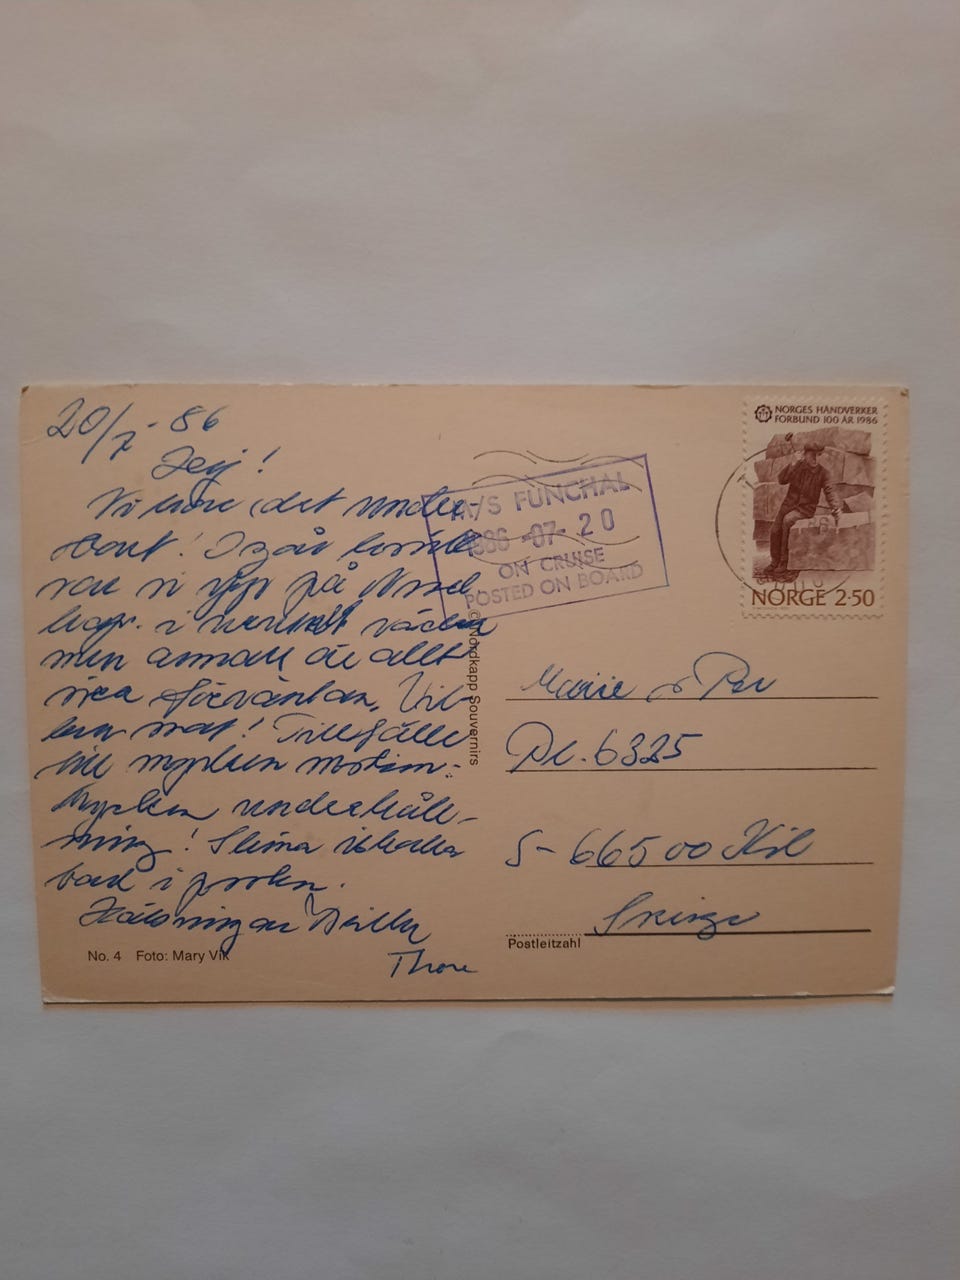 20/7-86
Hej!
Vi har det under-
bart! I går
var vi uppe på Nord-
kapp. i väder
men annars är allt
över förväntan.
mat! Tillfälle
till mycken motion.
Mycken underhåll-
ning! Simma
bad i poolen.
Hälsningar
Thore
No. 4 Foto: Mary Vik
© Nordkapp Souvernirs
M/S FUNCHAL
1986 -07- 20
ON CRUISE
POSTED ON BOARD
NORGES HÅNDVERKER
FORBUND 100 ÅR 1986
NORGE 2·50
Marie o Per
Pl. 6325
S-66500 Kil
Sverige
Postleitzahl